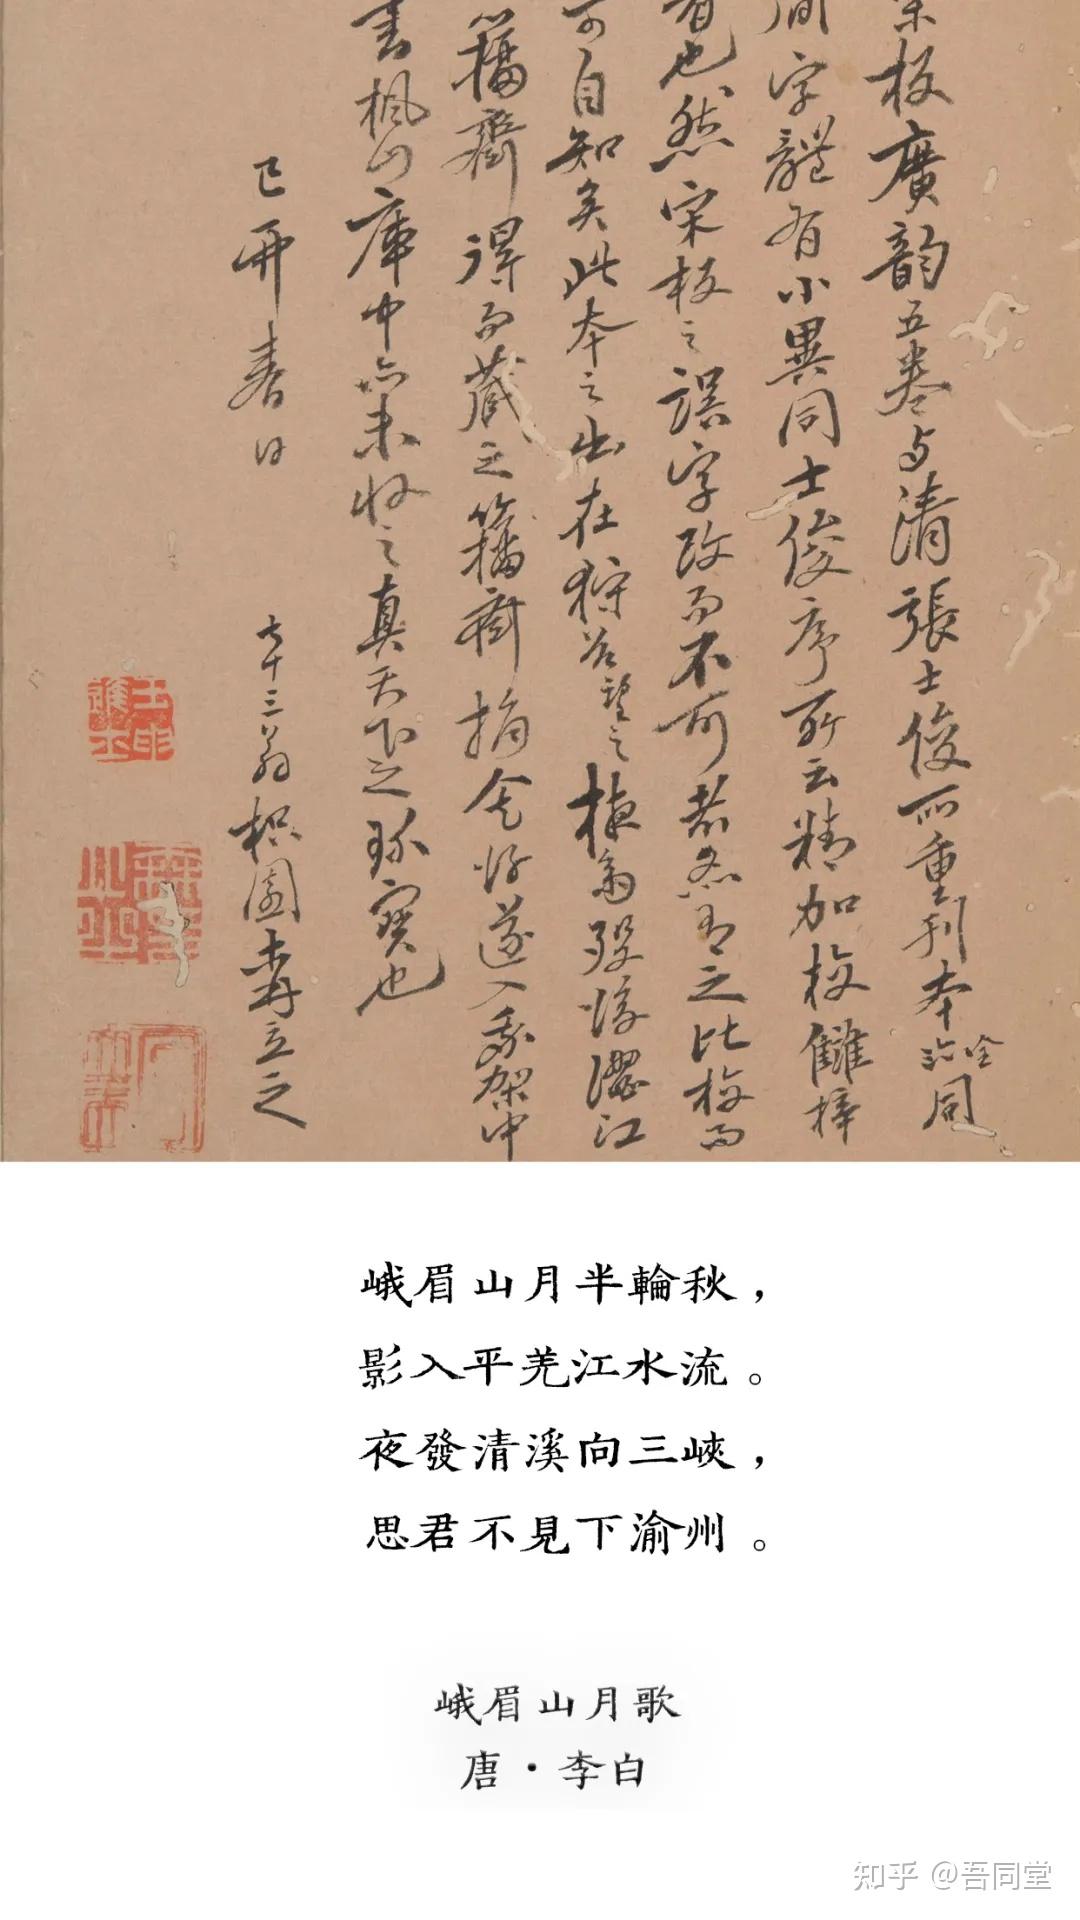 宋板廣韵五卷与清張士俊所重刊本全
同
間字體有小異同士俊序所云精加校讎梓
者也然宋板之誤字改而不可者亦有之比校而
可自知矣此本之出在狩谷望之掖翁歿後澀江
籀齋得而藏之籀齋捐舍後遂入我架中
書楓山庫中亦未收之真天下之珎寶也
己丑春日
七十三翁枳園森立之
峨眉山月半輪秋，
影入平羌江水流。
夜發清溪向三峽，
思君不見下渝州。
峨眉山月歌
唐·李白
知乎 @吾同堂